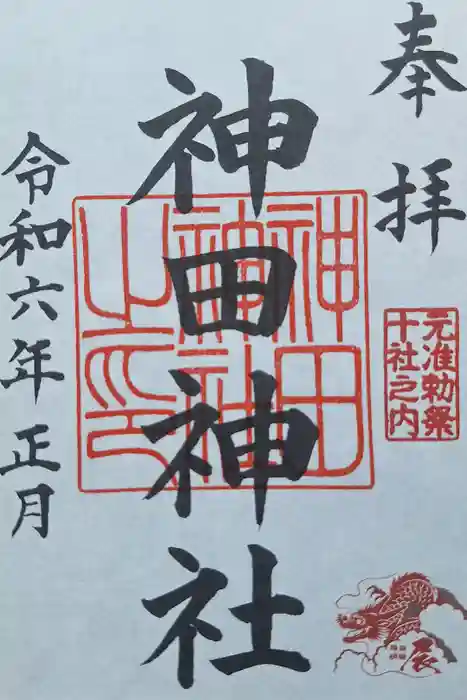 奉拝
神田神社
神田神社之印
元准勅祭
十社之内
令和六年正月
辰